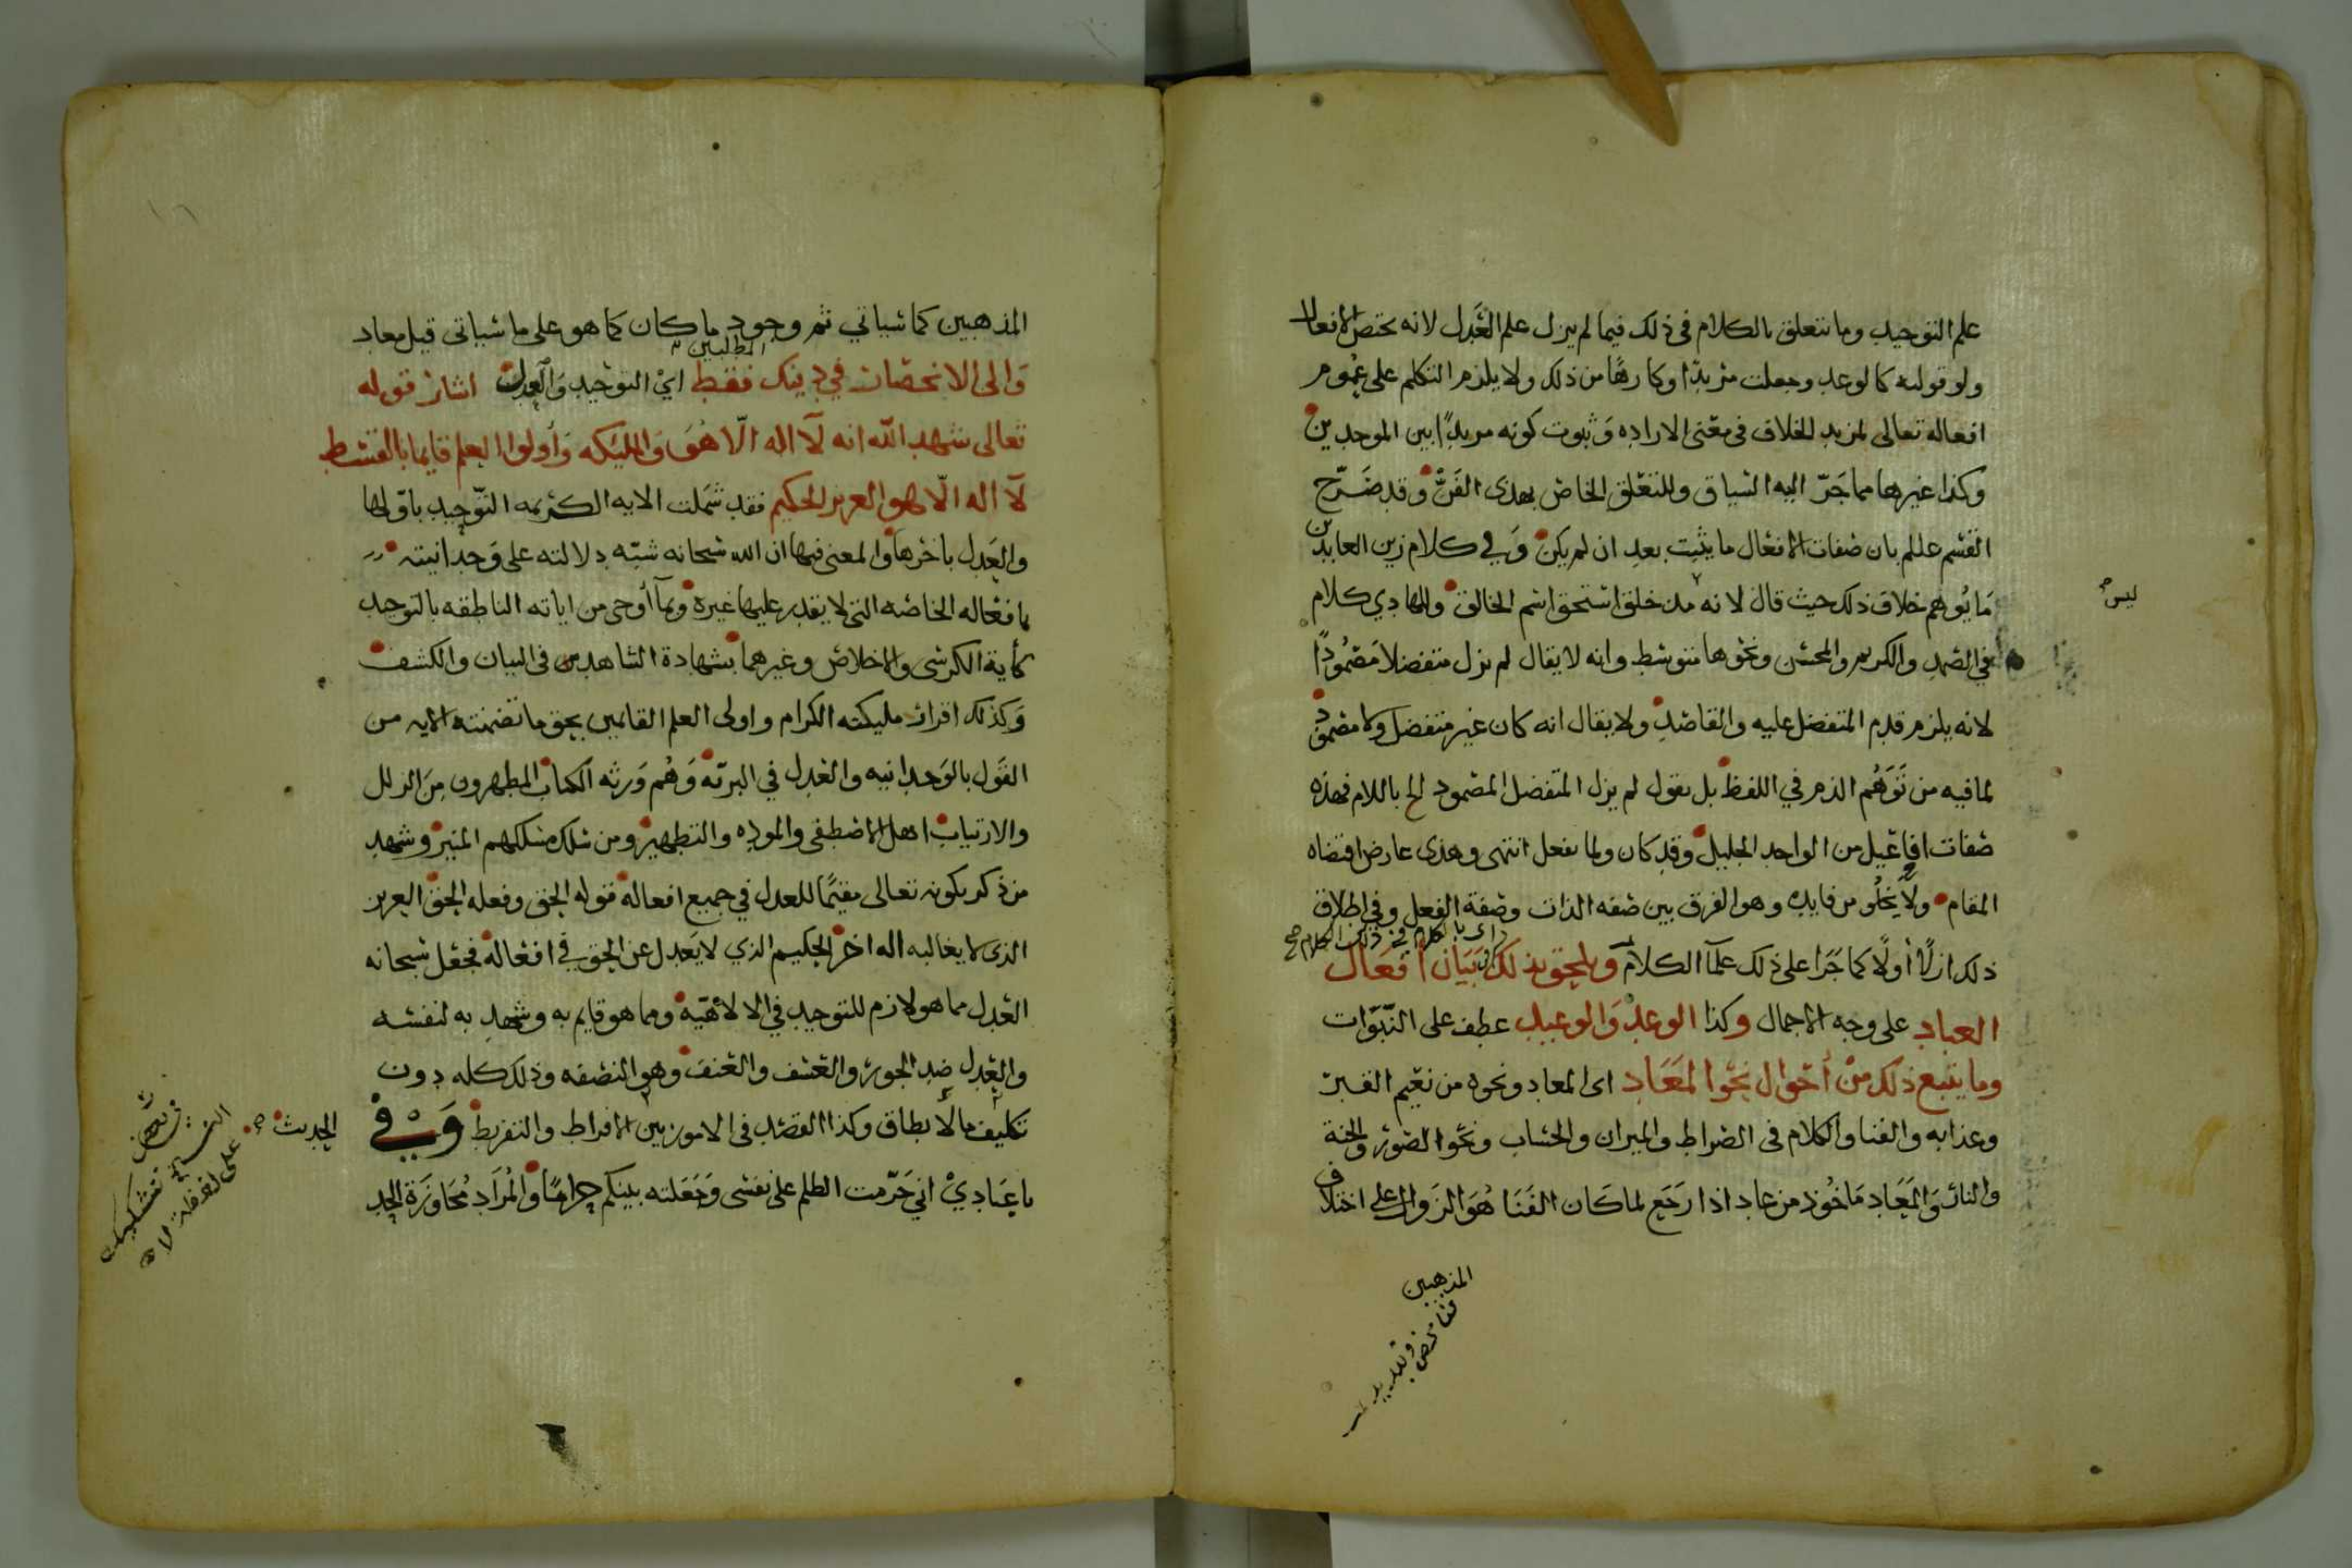 علم التوحيد وما يتعلق بالكلام في ذلك فيما لم يزل علم العَدل لانه يختص الافعال
ولو قوليه كالوعد وجعلت مريدًا وكارهًا من ذلك ولا يلزم التكلم على عُموم
افعاله تعالى لمزيد الخلاف في معنى الاراده وَثبوت كونه مريدًا بين الموحدين
وكذا غيرها مما جَرّ اليه السياق وللتعلق الخاص بهذى الفَنّ وقد صَرّح
القسم عللم بان صفات الافعال ما يثبت بعد ان لم يكن وَفي كلام زين العابدين
مَا يُوهم خلاف ذلك حيث قال لانه مذ خلق استحق اسم الخالق والهادي كلام
في الصمد والكريم والمحسن ونحوها متوسط وانه لا يقال لم يزل متفضلا مَصمُودًا
لانه يلزم قدم المتفضل عليه والقاصد ولا يقال انه كان غير متفضل ولا مصمود
لما فيه من تَوَهُم الذم في اللفظ بل يقول لم يزل المتفضل المصمود الخ باللام فهذه
صفات افاعيل من الواحد الجليل وقد كان ولما يفعل انتهى وهذى عارض اقتضاه
المقام ولا يَخلُو من فايده وهو الفرق بين صفه الذات وصفة الفعل وفي اطلاق
ذلك ازلًا أولًا كما جَرَا على ذلك علمآ الكلام ويلحق بذلك بَيَان افعَال
اي بالكلام في ذلك الكلام صح
العباد على وجه الاجمال وكذا الوعد وَالوعيد عطف على النبوّات
وما يتبع ذلك مِنْ أحوال نحو المَعَاد اى المعاد ونحوه من نعيم القبر
وعذابه والفنا والكلام في الصراط والميزان والحساب ونحو الصور والجنة
والنار وَالمَعَاد مَاخُوذ من عاد اذا رَجَع لما كَان الفَنَا هُوَ الزوال على اختلاف
المذهبين
ليس
المذهبين كما سياتي ثم وجود ما كان كما هو على ما سياتى قيل معاد
وَالى الانحصار في ذينك فقط اي التوحيد وَالعدل اشار قوله
المطلبين
تعالى شهد الله انه لآ اله الّا هُوَ وَالمليكه وَأولوا العلم قايما بالقسط
لآ اله الّا هو العزيز الحكيم فقد شملت الايه الكريمه التوحيد باوّلها
والعَدل باخرها والمعنى فيها ان الله سبحانه شبّه دلالته على وَحدانيته
بافعاله الخاصه التي لا يقدر عليها غيره وبمآ أوحى من اياته الناطقه بالتوحيد
كأية الكرسى والاخلاص وغيرهما بشهادة الشاهدين في البيان والكشف
وَكذلك اقرار مليكته الكرام واولى العلم القايمين بحق ما تضمنته الايه من
القَول بالوَحدانيه والعَدل في البريّه وَهُم وَرثه الكتاب المطهرون مِنَ الزلل
والارتياب اهل الاصطفى والموده والتطهير ومن سلك مسلكهم المنير وشهد
من ذكر بكونه تعالى مقيمًا للعدل في جميع افعاله قوله الحق وفعله الحق العزيز
الذى لا يغالبه اله اخر الحكيم الذي لا يَعدل عن الحق في افعاله فجعل سبحانه
العَدل مما هو لازم للتوحيد في الالاهيّه ومما هو قايم به وشهد به لنفسه
والعَدل ضد الجور والعسف والعنف وهو النصفه وذلك كله دون
تكليف ما لا يطاق وكذا القصد في الامور بين الافراط والتفريط وَفي
الحديث
يا عِبَادِيْ اني حَرّمت الظلم على نفسى وَجَعَلته بينكم حرامًا والمُرَاد مُجَاوَزَة الحد